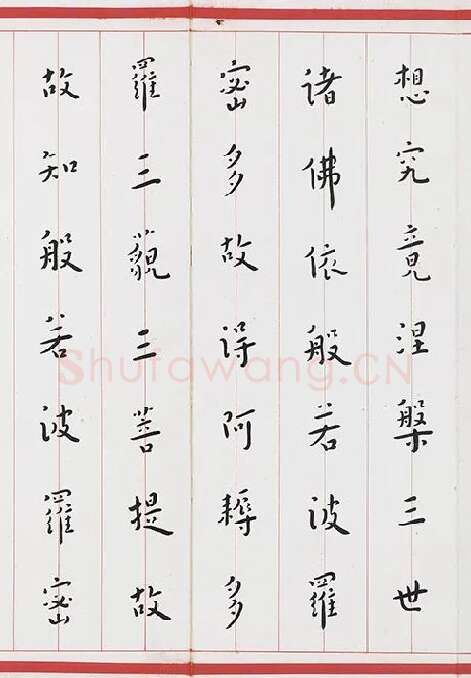 想究竟涅槃三世
诸佛依般若波羅
密多故得阿耨多
羅三藐三菩提故
故知般若波羅密
Shufawang.CN